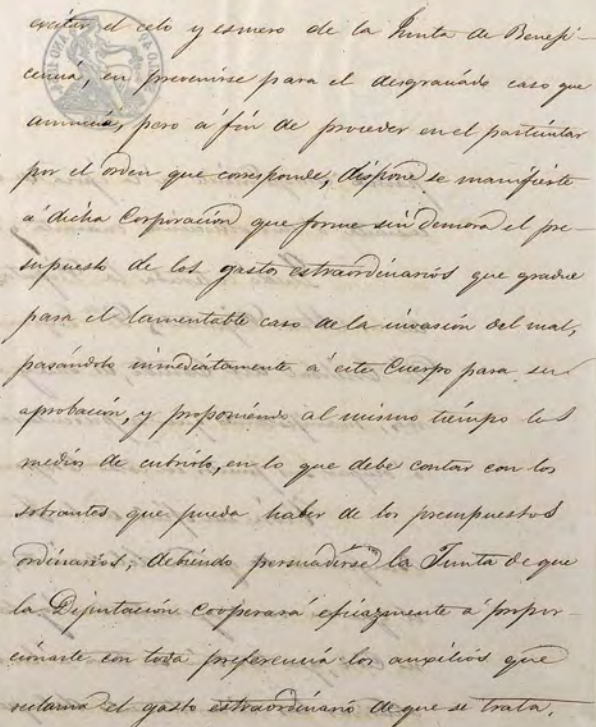 excitar el celo y esmero de la Junta de Benefi-
cencia, en prevenirse para el desgraciado caso que
anuncia, pero a fin de proceder en el particular
por el orden que corresponde, dispone se manifieste
á dicha Corporación que forme sin demora el pre-
supuesto de los gastos estraordinarios que gradue
para el lamentable caso de la invasión del mal,
pasándolo inmediatamente á este Cuerpo para su
aprobación, y proponiendo al mismo tiempo los
medios de cubrirlo, en lo que debe contar con los
sobrantes que pueda haber de los presupuestos
ordinarios, debiendo persuadirse la Junta de que
la Diputación cooperará eficazmente á propor-
cionarle con toda preferencia los auxilios que
reclama el gasto estraordinario de que se trata.